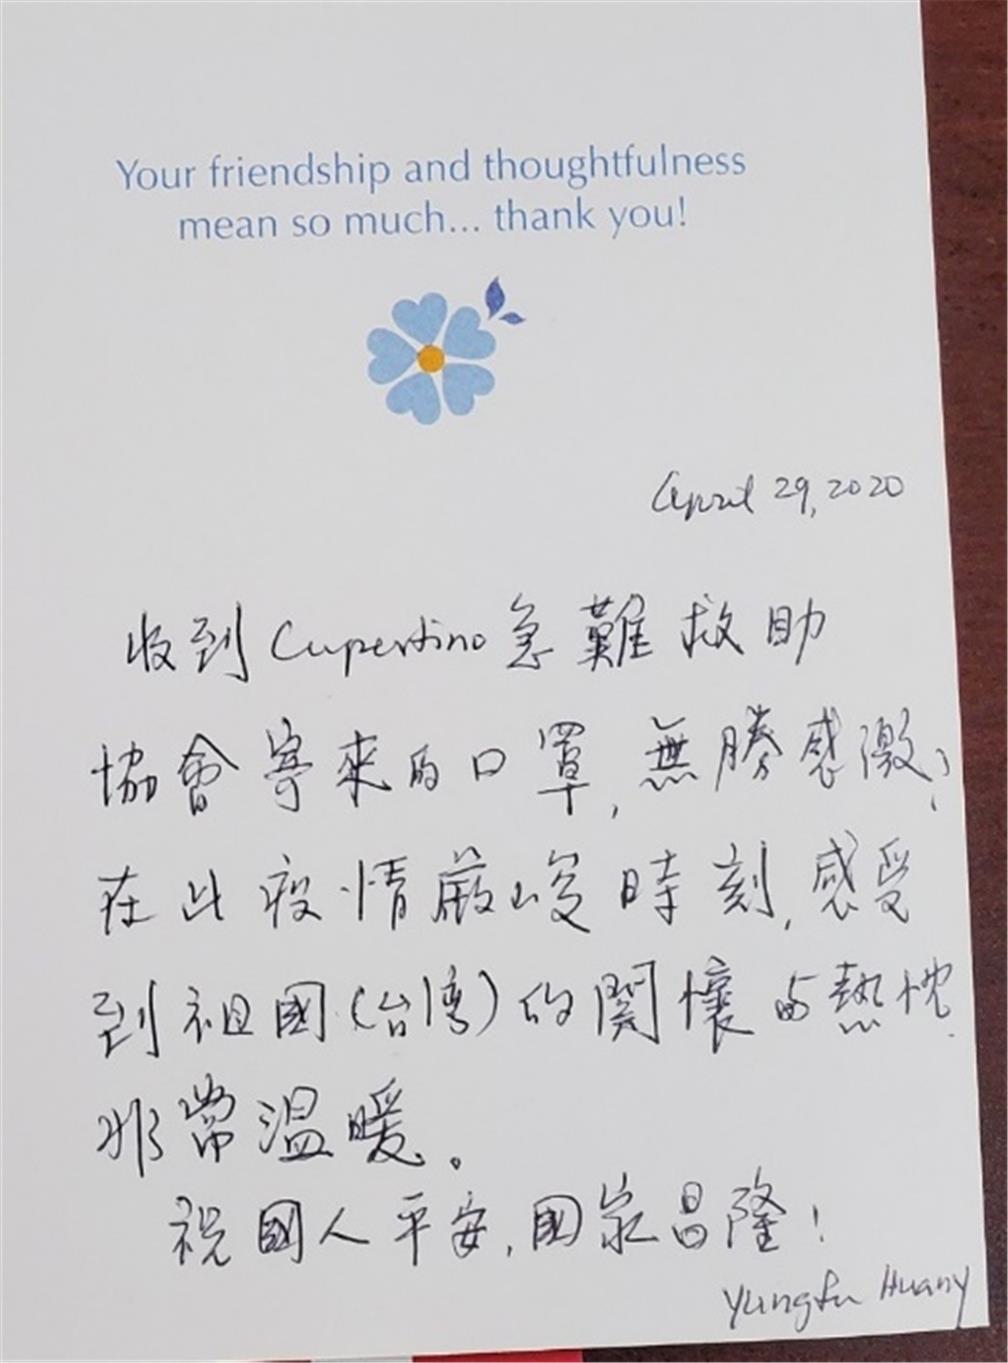 Your friendship and thoughtfulness
mean so much... thank you!
April 29, 2020
收到 Cupertino 急難救助
協會寄來的口罩,無勝感激;
在此疫情嚴峻時刻,感受
到祖國(台灣)的関懷与熱忱.
非常溫暖。
祝國人平安,國家昌隆!
Yungfu Huang